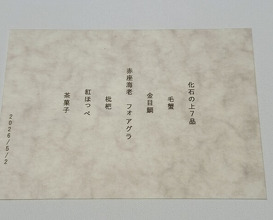 化石の上7品
毛蟹
金目鯛
赤座海老 フォアグラ
枇杷
紅ほっぺ
茶菓子
2026/5/2